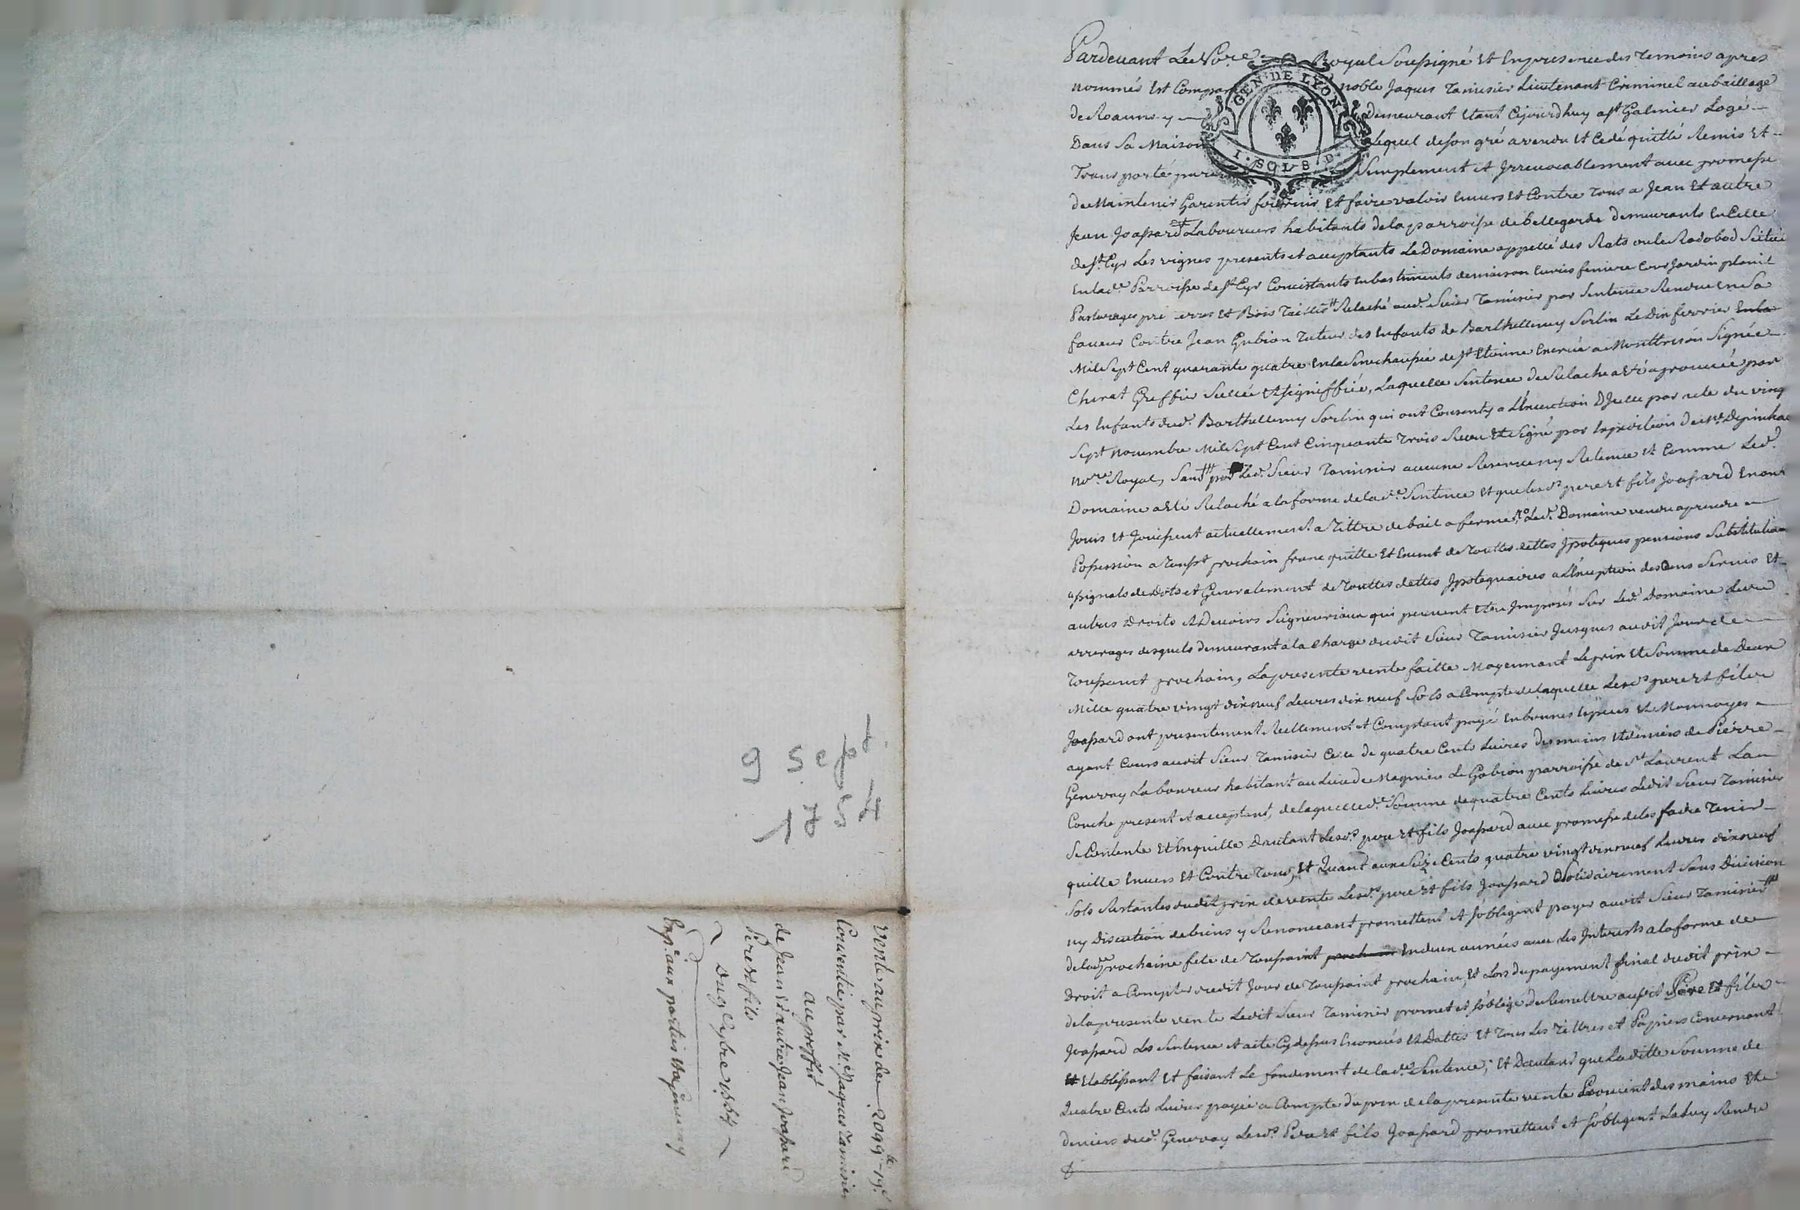 9 sept
1754
Vente au prix de 2099 lt - 19 s
Consentie par Mr Jaques Tamisier
au proffit
de Jean et autre Jean Joassard
Pere et fils
Du 9 7bre 1754
Exp.on aux parties et a Genevay
Pardevant Le No.re Royal Soussigné Et En presence des Temoins apres
nommés Est Comparu noble Jaques Tamisier Lieutenant Criminel au baillage
de Roanne y Demeurant Etant Cejourdhuy a St Galmier Logé
Dans Sa Maison Lequel de son gré a vendu Et Cedé quitté Remis Et
Transporté purement Simplement et Irrevocablement avec promesse
de Maintenir Garentir fournir Et faire valoir Envers Et Contre Tous a Jean Et autre
Jean Joassard Laboureurs habitants de la parroisse de bellegarde demeurants En Celle
de St Cyr Les vignes presents et acceptants Le Domaine appellé des Rats ou le Radobod Scitué
En lad.e Parroisse de St Cyr Concistants En bastiments de maison Ecuries feniere Cour Jardin
Pasturages pré terres Et Bois Taillis Relaché aud. Sieur Tamisier par Sentence Rendue En Sa
faveur Contre Jean Gubian Tuteur des Enfants de Barthellemy Sorlin Le Dix fevrier
Mil Sept Cent quarante quatre En la Senechaussée de St Etienne Exercée a Montbrison Signée
Greffier Scellée Et Signiffiée, Laquelle Sentence de Relache a Eté aprouvée par
Les Enfants dud. Barthellemy Sorlin qui ont Consenty a L'Execution D'Icelle par acte du ving
Sept novembre Mil Sept Cent Cinquante Trois Scellé Et Signé par Expedition de Me
No.re Royal, Sans par Led. Sieur Tamisier aucune Reserve ny Retenue Et Comme Led.
Domaine a Eté Relaché a la forme de lad.e Sentence Et que Lesd.s pere et fils Joassard En ont
Jouis Et Jouissent actuellement a Tittre de bail a ferme, Led. Domaine vendu a prendre
Possession a Tousst prochain franc quitte Et Exemt de Touttes dettes Ipoteques pensions Substitutions
assignats de Dots et Generalement de Touttes dettes Ipotequaires a L'Exception des Cens Servis Et
autres Droits et Devoirs Seigneuriaux qui peuvent Etre Imposés Sur Led. Domaine
arrerages desquels demeurant a la Charge dudit Sieur Tamisier Jusques audit Jour de
Toussaint prochain, La presente vente faitte Moyennant Le prix Et Somme de Deux
Mille quatre vingt dix neuf Livres dix neuf Sols a Compte de laquelle Lesd.s pere et fils
Joassard ont presentement Reellement et Comptant payé En bonnes Especes Et Monnoyes
ayant Cours audit Sieur Tamisier Celle de quatre Cents Livres des mains Et deniers de Pierre
Genevay Laboureur habitant au Lieu de Magnieu Le Gabion parroisse de St Laurent La
Conche present et acceptant, de laquelle d. Somme de quatre Cents Livres Ledit Sieur Tamisier
Se Contente Et En quitte D'autant Lesd.s pere et fils Joassard avec promesse de les faire Tenir
quitte Envers Et Contre Tous, Et Quant aux Seize Cents quatre vingt dix neuf Livres dix neuf
Sols Restantes dudit prix de vente Lesd.s pere et fils Joassard Solidairement Sans Division
ny Discution de biens y Renonceant promettent et S'obligent payer audit Sieur Tamisier
de la prochaine fete de Toussaint prochain En deux années avec Les Interests a la forme de
Droit a Compter dudit Jour de Toussaint prochain, Et Lors du payement final dudit prix
de la presente vente Ledit Sieur Tamisier promet et S'oblige de Remettre auxdit Pere Et fils
Joassard La Sentence Et acte Cy dessus Enoncés Et Dattés Et Tous Les Tittres et Papiers Concernant
Et Etablissant Et faisant Le fondement de lad.e Sentence; Et D'autant que Laditte Somme de
Quatre Cents Livres payée a Compte du prix de la presente vente Provient des mains Et
deniers dud. Genevay Lesd.s Pere et fils Joassard promettent et S'obligent La luy Rendre
GEN. DE LYON
I. SOLS D.